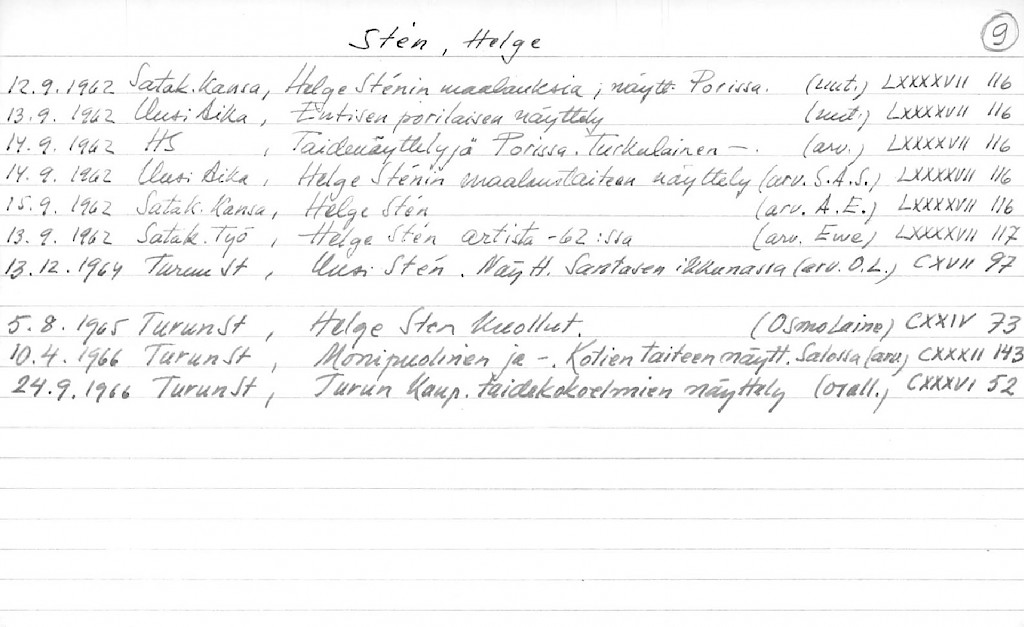 Stén, Helge
9
12.9.1962 Satak. Kansa, Helge Sténin maalauksia ; näytt. Porissa. (uut.) LXXXXVII 116
13.9.1962 Uusi Aika, Entisen porilaisen näyttely (uut.) LXXXXVII 116
14.9.1962 HS , Taidenäyttelyjä Porissa. Turkulainen —. (arv.) LXXXXVII 116
14.9.1962 Uusi Aika, Helge Sténin maalaustaiteen näyttely (arv. S.A.S.) LXXXXVII 116
15.9.1962 Satak. Kansa, Helge Stén (arv. A.E.) LXXXXVII 116
13.9.1962 Satak. Työ , Helge Stén artista -62:ssa (arv. Ewe) LXXXXVII 117
13.12.1964 Turun St , Uusi Stén. Näytt. Santasen ikkunassa (arv. O.L.) CXVII 97
5.8.1965 TurunSt , Helge Sten kuollut. (Osmo Laine) CXXIV 73
10.4.1966 TurunSt , Monipuolinen ja —. Kotien taiteen näytt. Salossa (arv.) CXXXII 143
24.9.1966 TurunSt , Turun Kaup. taidekokoelmien näyttely (osall.) CXXXVI 52